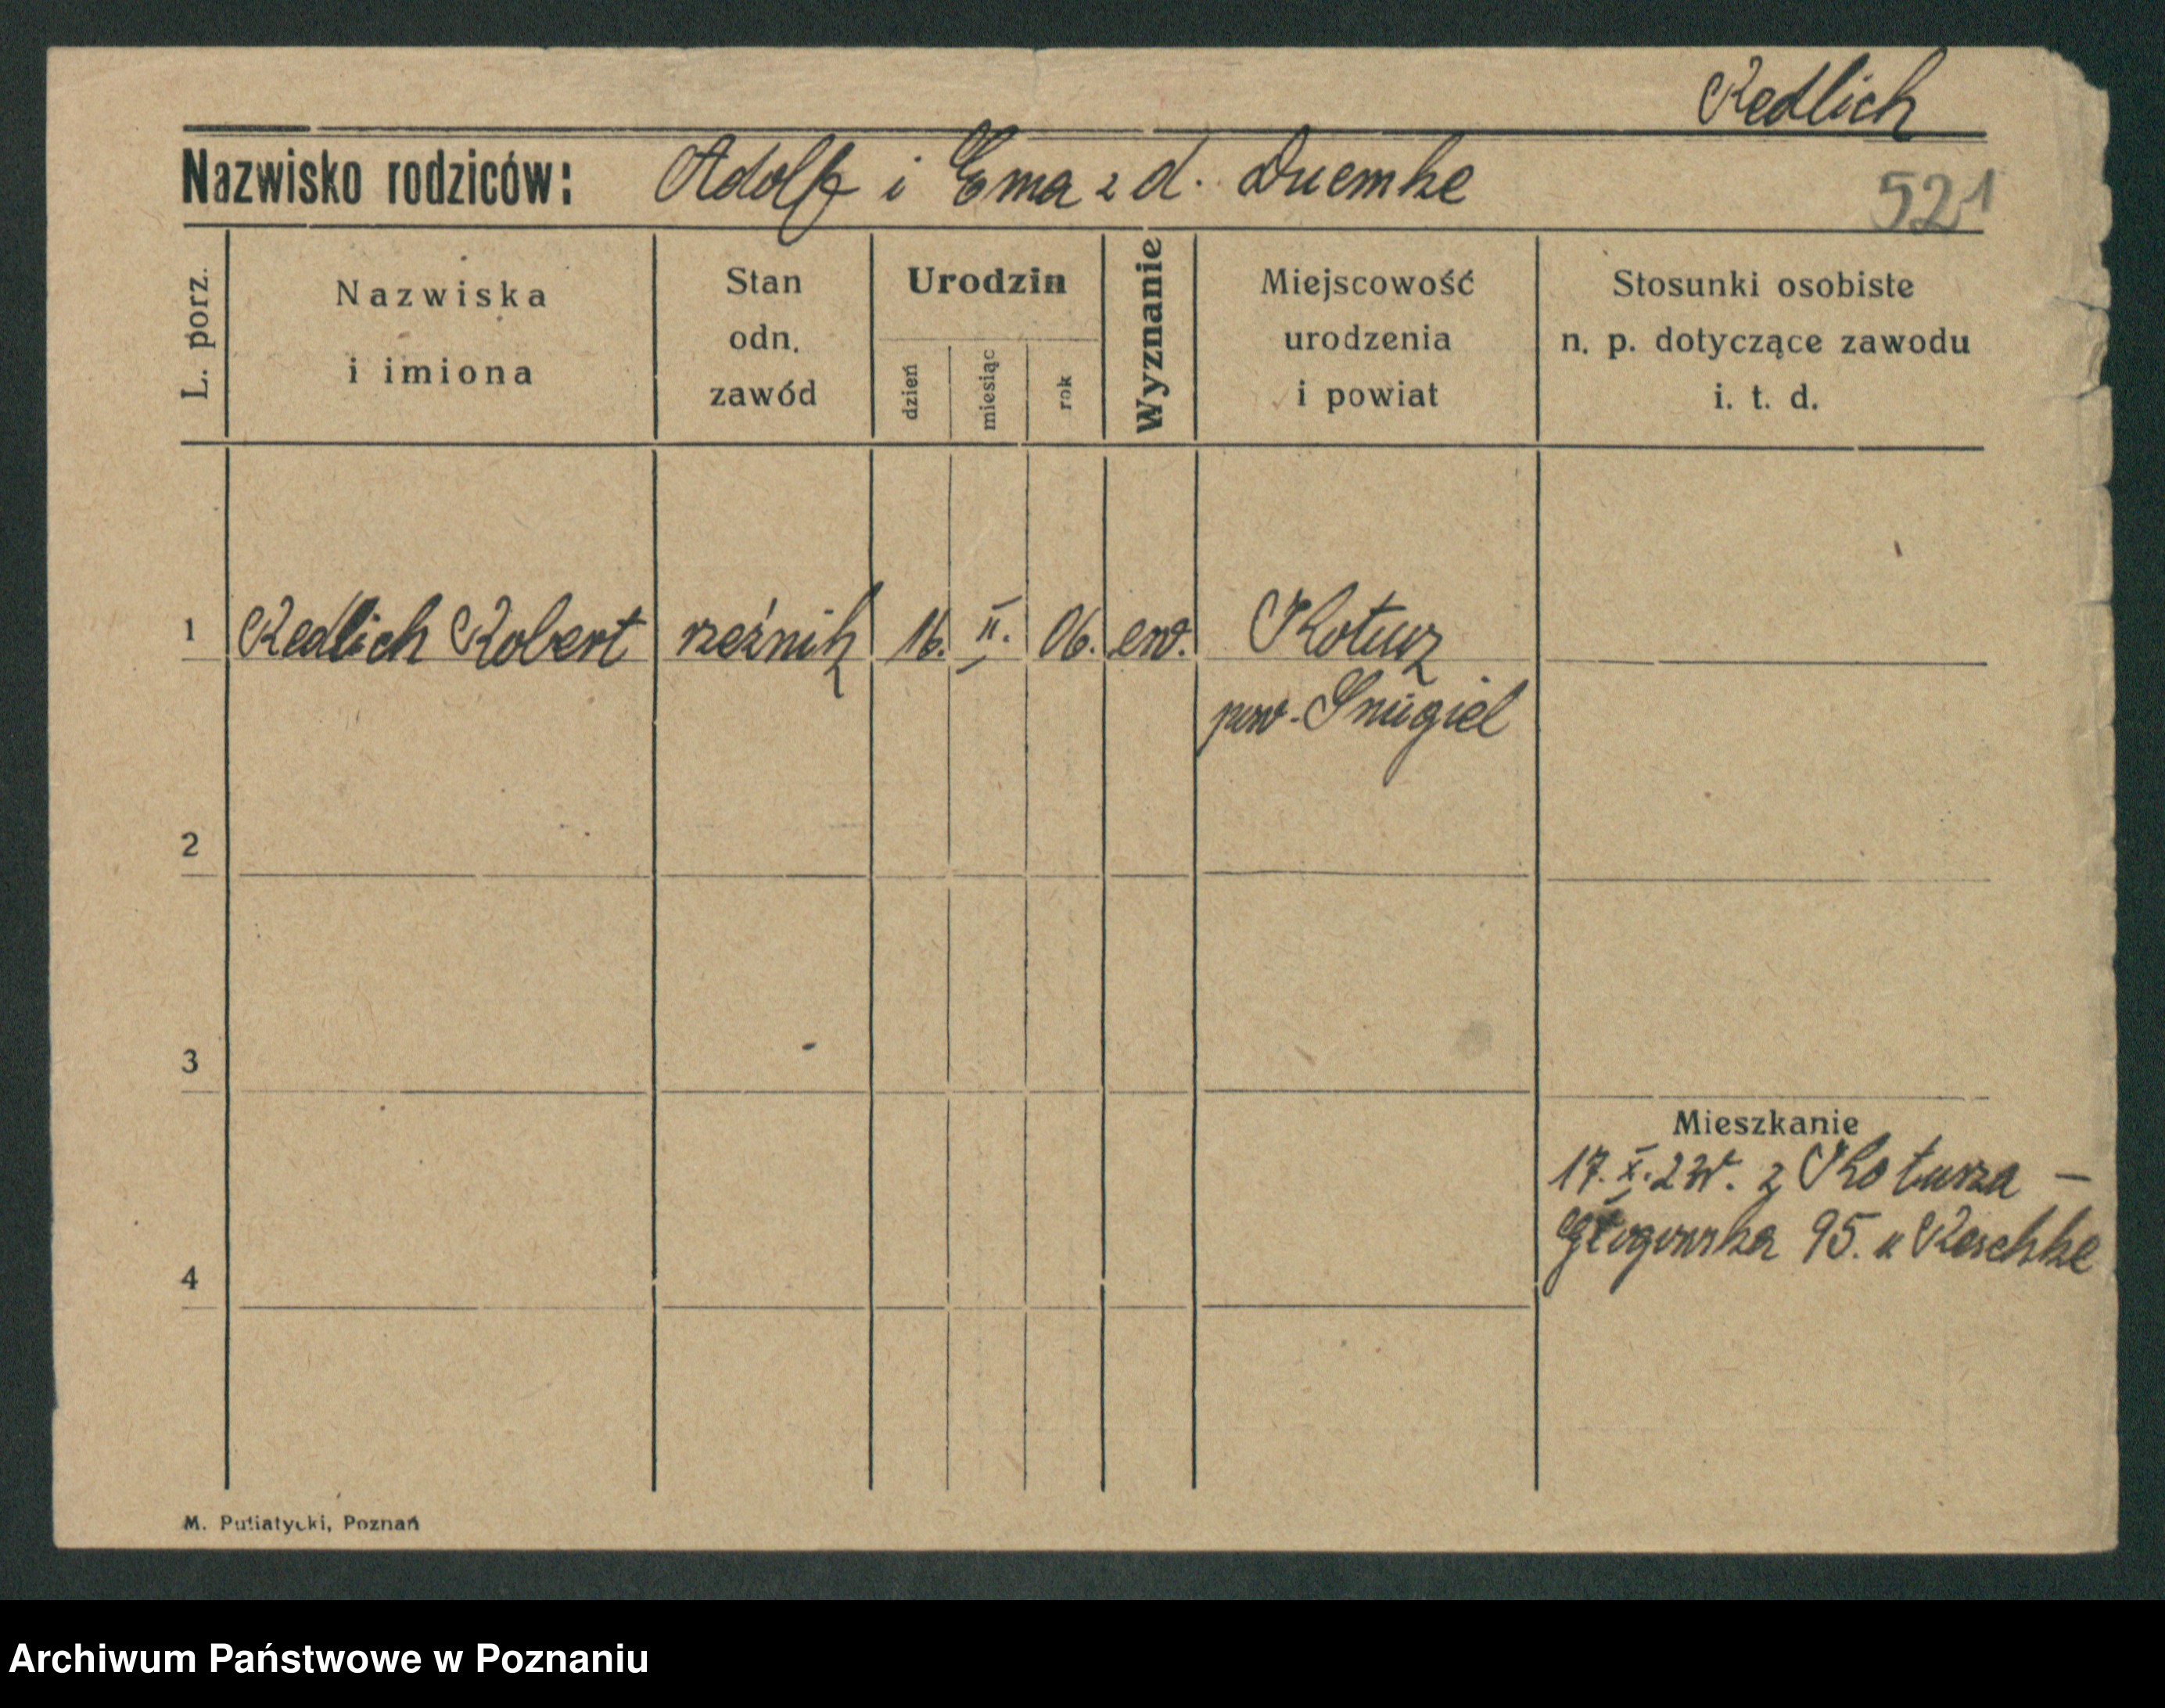 Redlich
Nazwisko rodziców: Adolf i Ema z d. Duemke
521
L. porz.
Nazwiska
i imiona
Stan
odn.
zawód
Urodzin
dzień
miesiąc
rok
Wyznanie
Miejscowość
urodzenia
i powiat
Stosunki osobiste
n. p. dotyczące zawodu
i. t. d.
1 Redlich Robert rzeźnik 16. II. 06. ew. Kotusz
pow. Smigiel
2
3
Mieszkanie
17. X. 23r. z Kotusza –
Głogowska 95. u Reschke
4
M. Putiatycki, Poznań
Archiwum Państwowe w Poznaniu